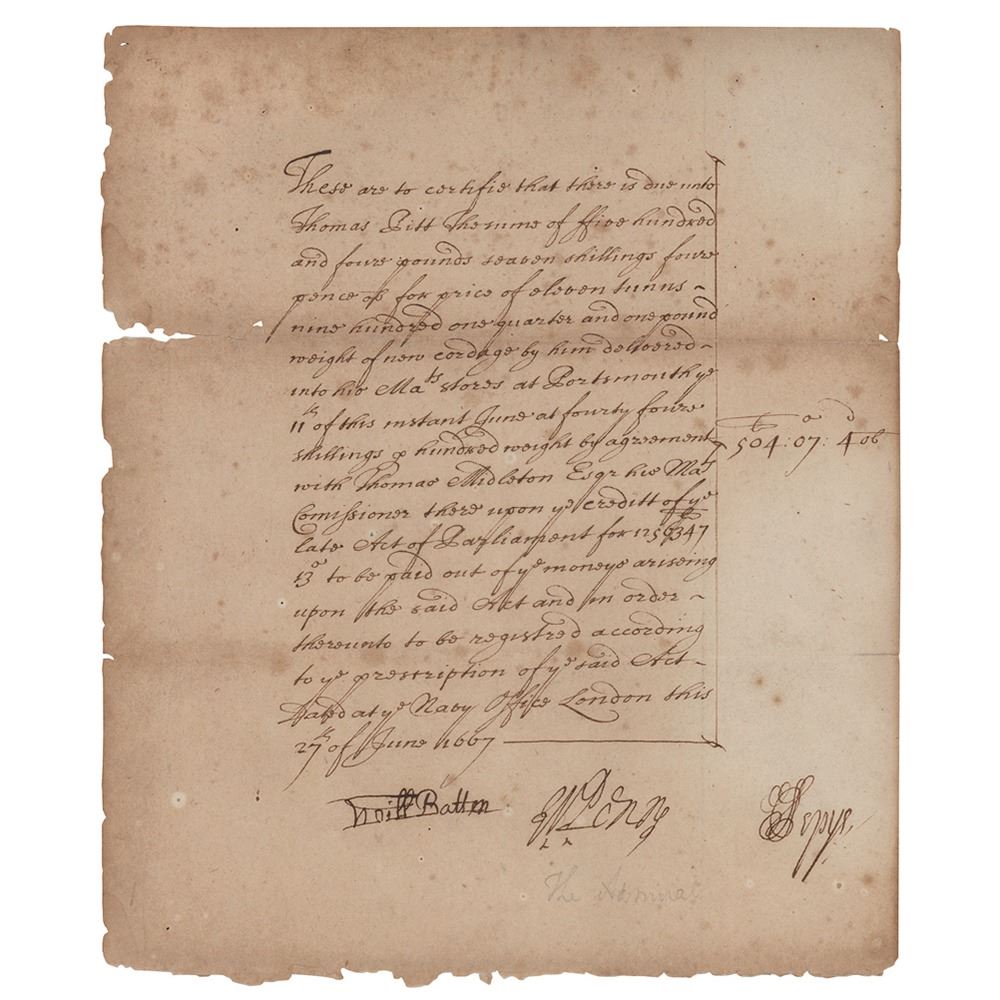 These are to certifie that there is due unto
Thomas Pitt The sume of ffive hundred
and foure pounds seaven shillings foure
pence ob for price of eleven tunns ~
nine hundred one quarter and one pound
weight of new cordage by him delivered ~
into his Mats stores at Portsmouth ye
11th of this instant June at fourty foure
shillings p hundred weight by agreement
with Thomas Midleton Esqr his Mats
Comissioner there upon ye creditt of ye
late Act of Parliament for 1256347li
13s to be paid out of ye moneys ariseing
upon the said Act and in order ~
thereunto to be registred according
to ye prescription of ye said Act ~
Dated at ye Navy Office London this
27th of June 1667
li s d
504:07:4 ob
Will Batten
W Penn
S Pepys.
The Admiral